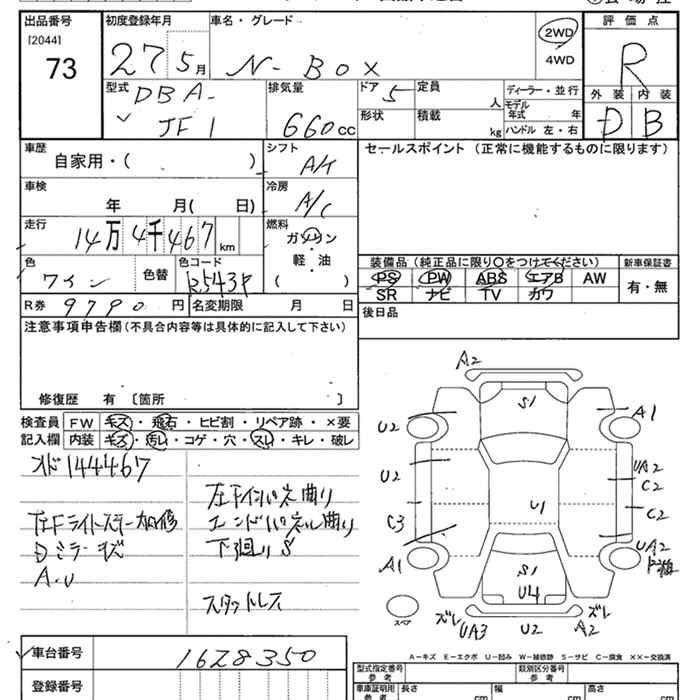 出品番号 初度登録年月 車名・グレード 評価点
[2044]
73 27 5月 N-BOX 2WD 4WD R
型式 DBA- JF1 排気量 660cc ドア 5 定員 人 ディーラー・並行 外装 内装
形状 積載 kg モデル年式 年 ハンドル 左・右 D B
車歴 自家用・( ) シフト A/T セールスポイント (正常に機能するものに限ります)
車検 年 月( 日) 冷房 A/C
走行 14万4千467km 燃料 ガソリン・軽・油 ( )
色 ワイン 色替 色コード R543P
装備品 (純正品に限り○をつけてください) 新車保証書
PS PW ABS エアB AW 有・無
SR ナビ TV カワ
R券 9790円 名変期限 月 日 後日品
注意事項申告欄 (不具合内容等は具体的に記入して下さい)
修復歴 有 〔箇所 〕
検査員 FW キズ・飛石・ヒビ割・リペア跡・×要
記入欄 内装 キズ・汚レ・コゲ・穴・スレ・キレ・破レ
144467
左Fインパネ曲り
エンドパネル曲り
下廻りS
Dミラーキズ
A.U
スタットレス
A2
S1
U2 A1
U2 UA2
C2
U1
C3 C2
A1 UA2
S1
U4
スペア ズレ UA3 U2 A2 ズレ
A-キズ E-エクボ U-凹み W-補修跡 S-サビ C-腐食 ××-交換済
車台番号 1628350
登録番号
型式指定番号 参考 類別区分番号 参考
車庫証明用 参考 長さ cm 幅 cm 高さ cm